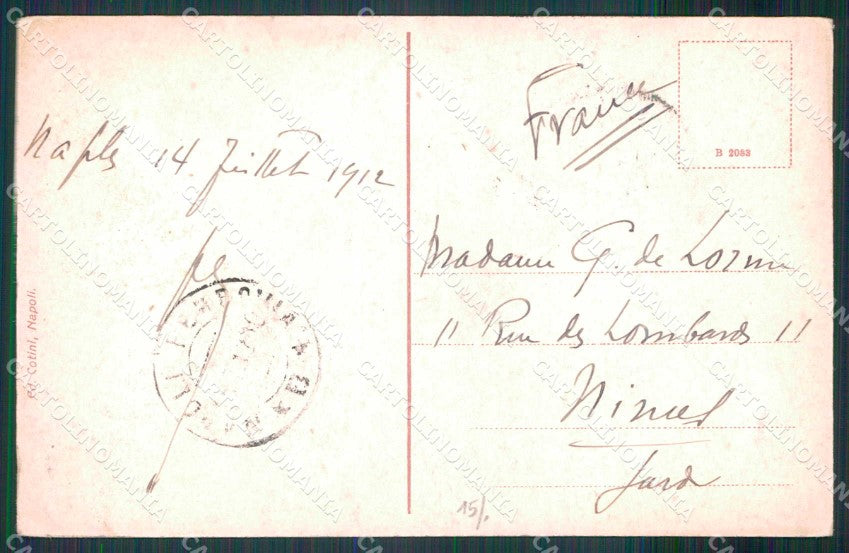 Naples 14 Juillet 1912
NAPOLI FERROVIA
Ed. Cotini, Napoli.
France
B 2083
Madame G. de
11 Rue des Lombards 11
Nimes
Gard
15/.
CARTOLINOMANIA